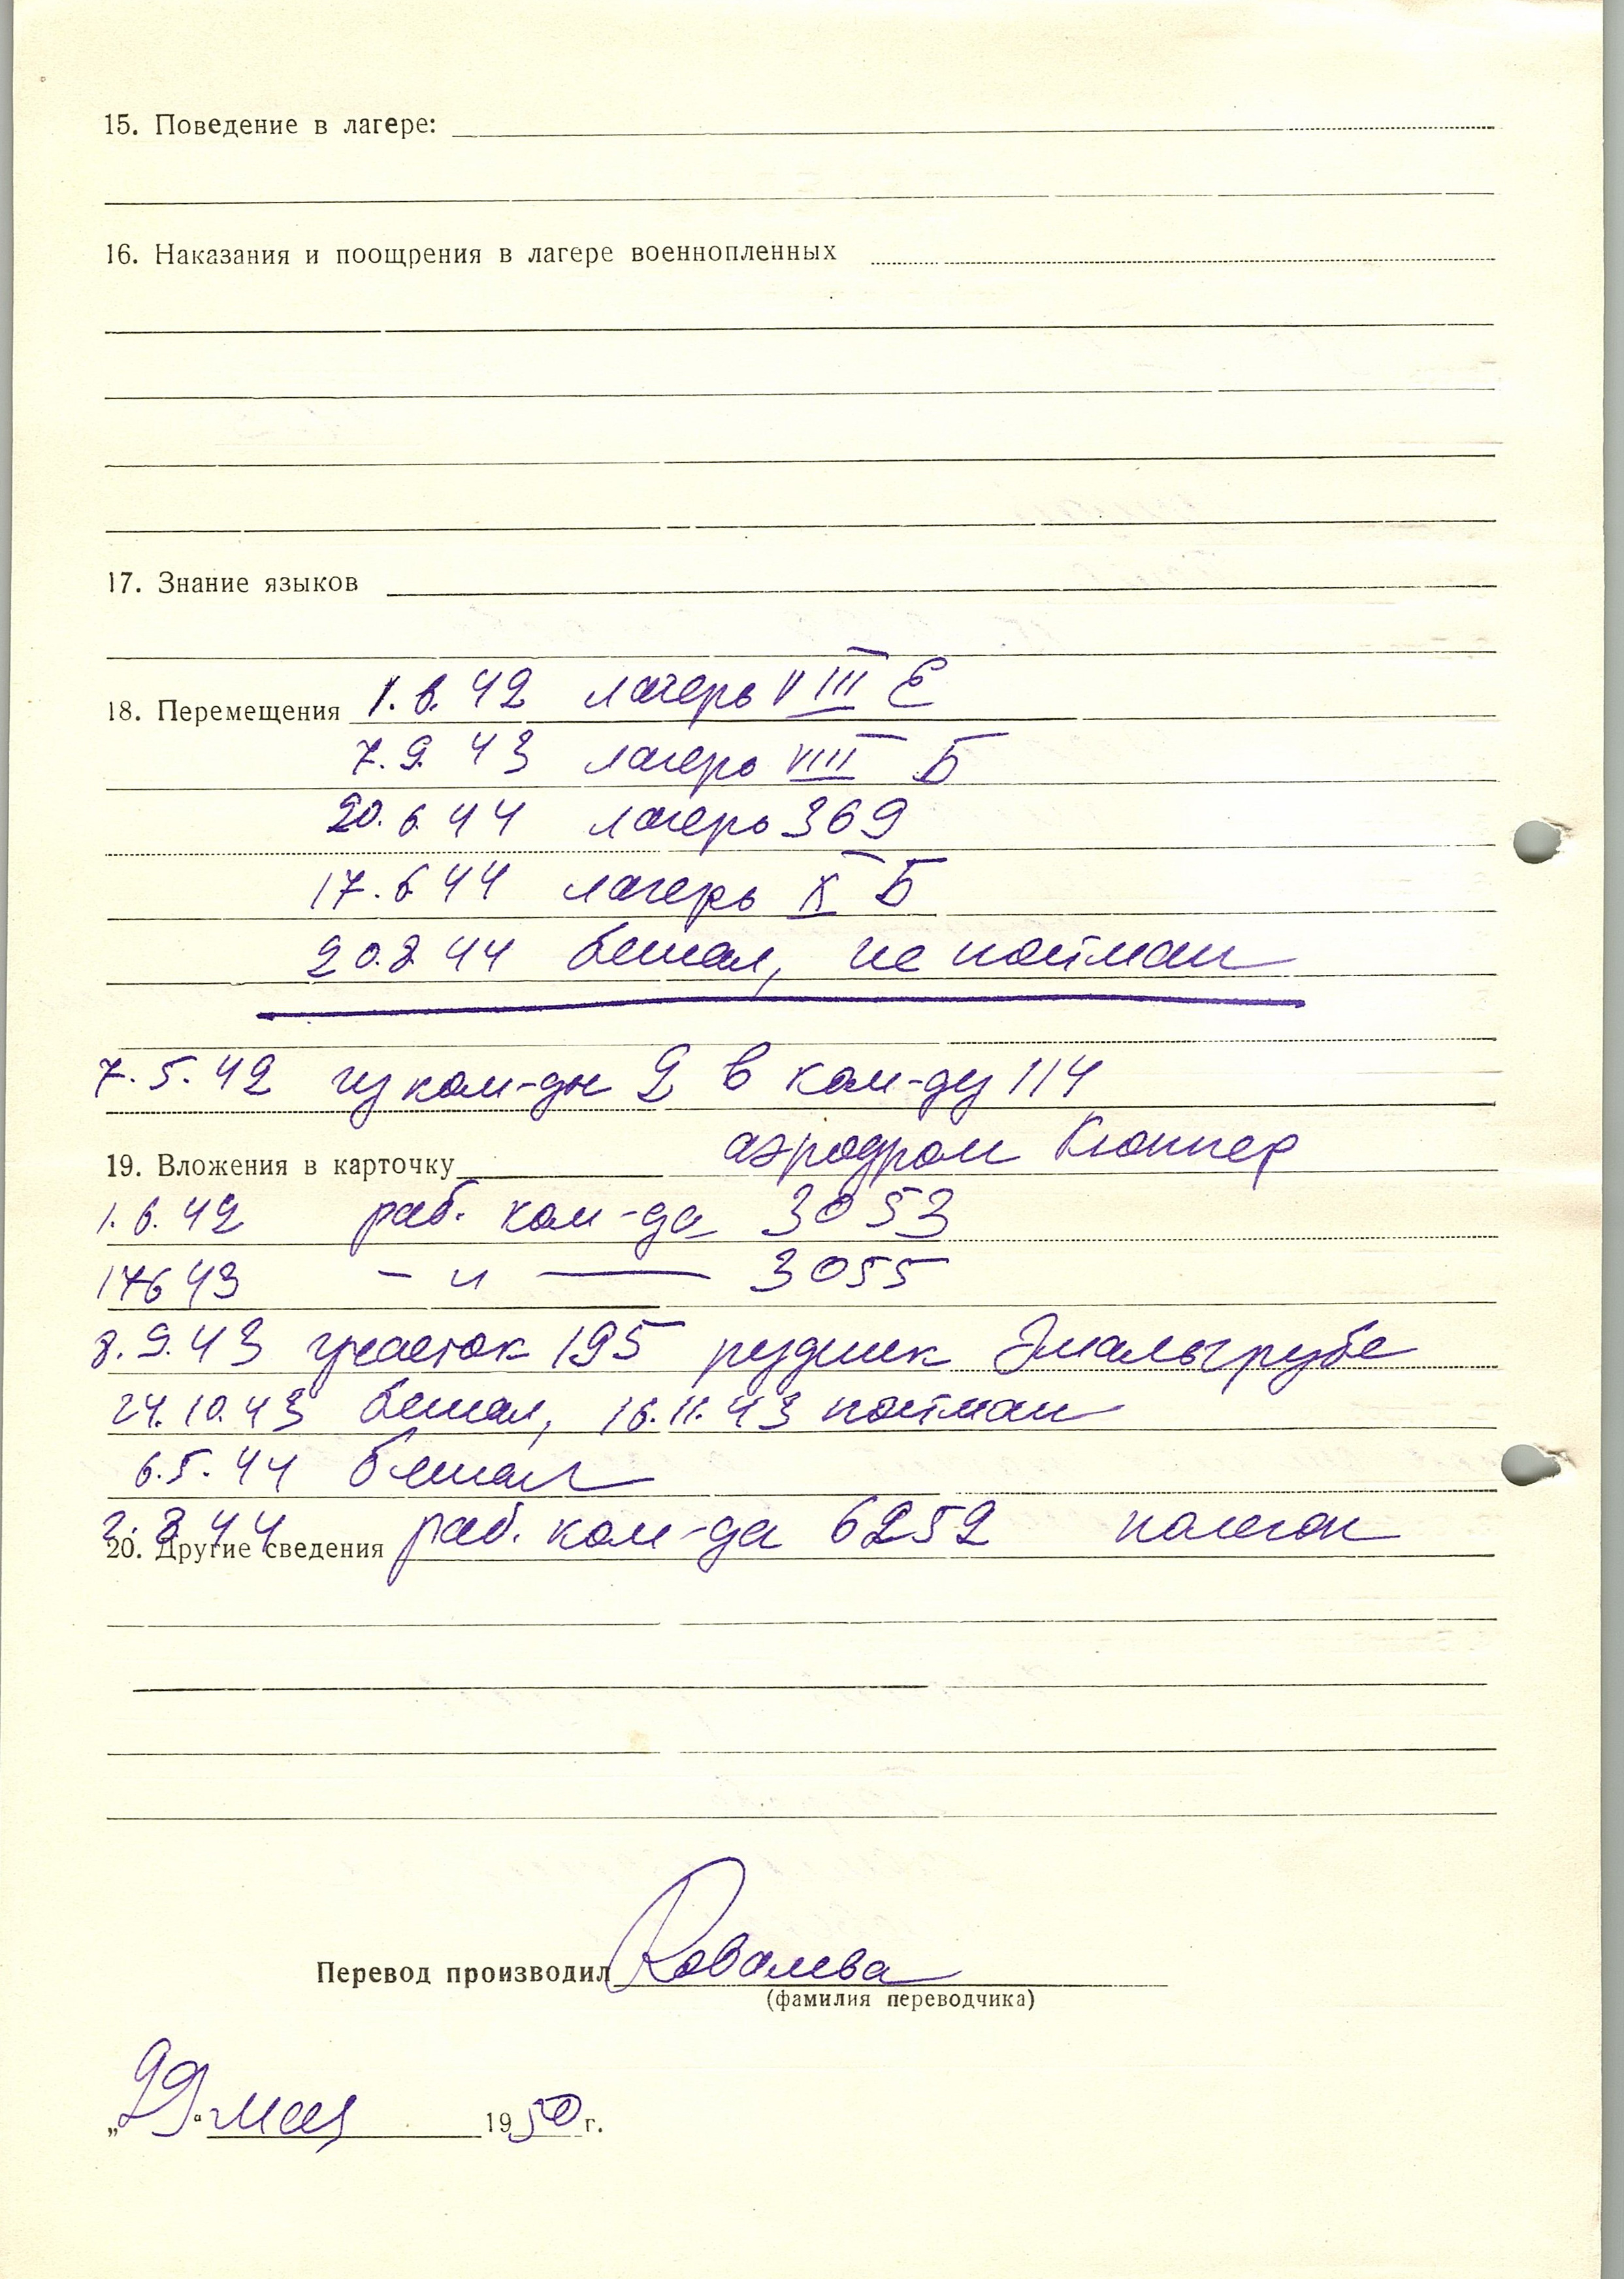 15. Поведение в лагере:
16. Наказания и поощрения в лагере военнопленных
17. Знание языков
18. Перемещения 1.6.42 лагерь VIII Е
7.9.43 лагерь VIII Б
20.6.44 лагерь 369
17.6.44 лагерь X Б
20.8.44 бежал, не пойман
7.5.42 из ком-ды 2 в ком-ду 114
аэродром Кюппер
19. Вложения в карточку
1.6.42 раб. ком-да 3053
17 6 43 — и — 3055
8.9.43 участок 195 рудник
24.10.43 бежал, 16.11.43 пойман
6.5.44 бежал
8.44 раб. ком-да 6252
20. Другие сведения
Перевод производил Ковалева
(фамилия переводчика)
„29“ мая 1950 г.